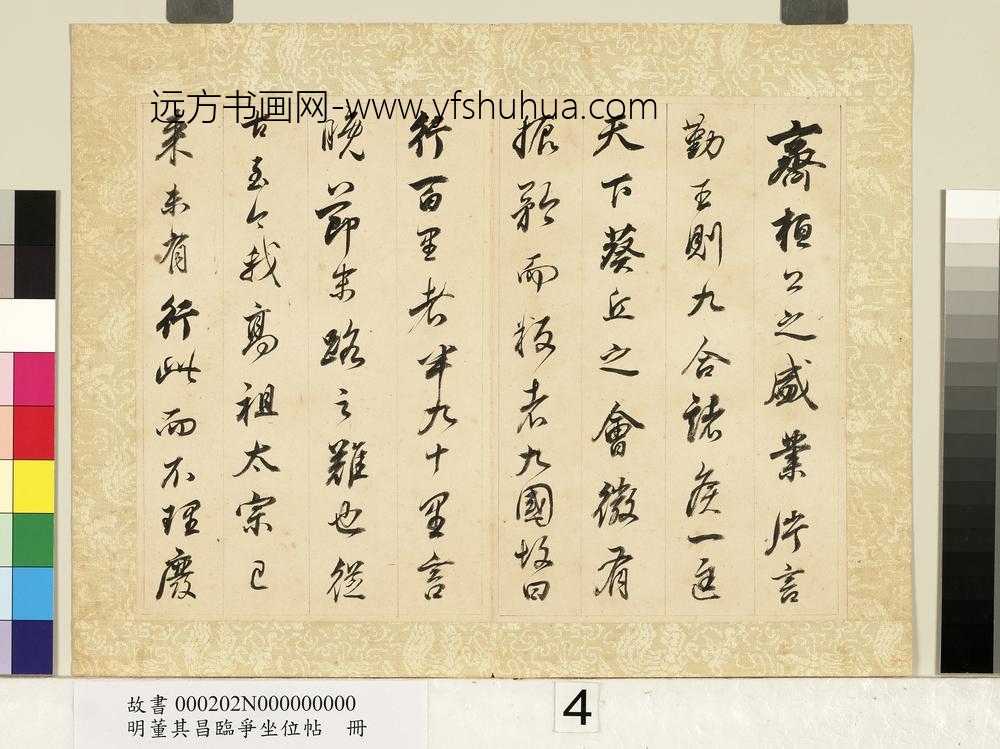 远方书画网-www.yfshuhua.com
齊桓公之盛業片言
勤王則九合諸侯一匡
天下葵丘之會微有
振矜而叛者九國故曰
行百里者半九十里言
晚節末路之難也從
古至今我高祖太宗已
來未有行此而不理廢
故書 000202N000000000
明董其昌臨爭坐位帖 冊
4